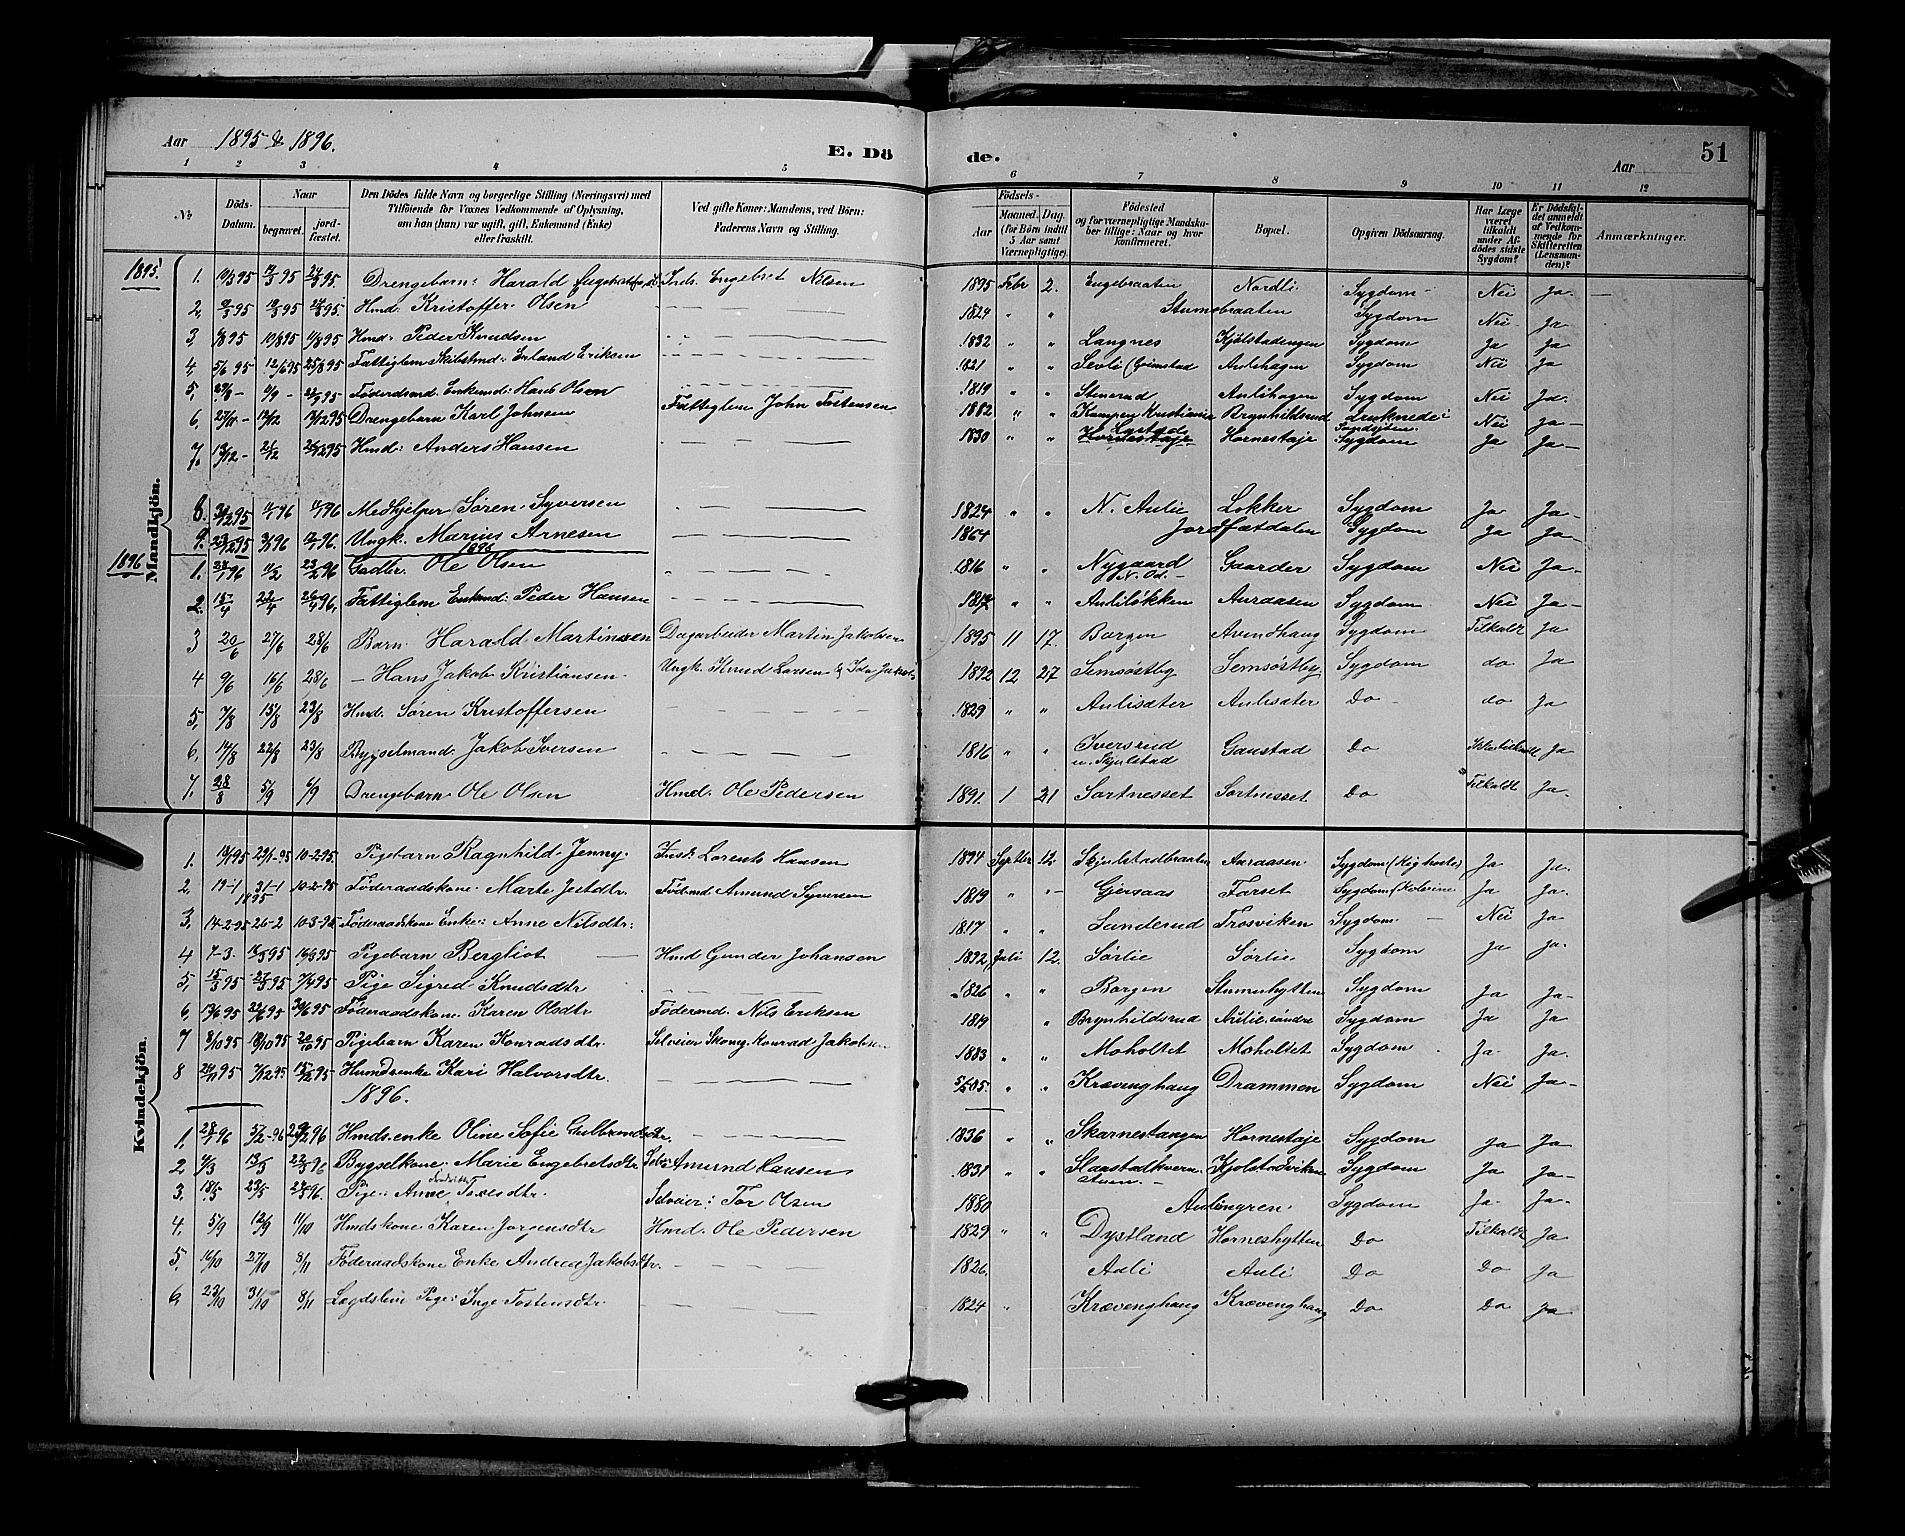 Aar 1895 & 1896.
E. Dö
de.
Aar
51
1 2 3 4 5 6 7 8 9 10 11 12
№
Döds-Datum.
Naar
begravet.
jord-fæstet.
Den Dödes fulde Navn og borgerlige Stilling (Næringsvei) med Tilföiende for Voxnes Vedkommende af Oplysning, om han (hun) var ugift, gift, Enkemand (Enke) eller fraskilt.
Ved gifte Koner: Mandens, ved Börn: Faderens Navn og Stilling.
Födsels-
Aar
Maaned. Dag. (for Börn indtil 5 Aar samt Værnepligtige).
Födested og for værnepligtige Mandskaber tillige: Naar og hvor konfirmeret.
Bopæl.
Opgiven Dödsaarsag.
Har Læge været tilkaldt under Afdödes sidste Sygdom?
Er Dödsfaldet anmeldt af Vedkommende for Skifteretten (Lensmanden)?
Anmærkninger.
Mandkjön.
1895.
1. Drengebarn: Harald Inds. Engebret Nilsen 1895 Febr 2. Engebraaten Nordli Sygdom Nei Ja. —
2, Hmd. Kristoffer Olsen 1824 " " Stumobraaten Sygdom Nei Ja
3, Hmd: Peder Knudsen 1832 " " Langnes Kjölstadengen Sygdom Ja Ja
4, 5/6 95 12/6 95 25/8 95 Fattiglem Erland Eriksen 1821 " " Sevli (Grimstad Aulihagen Sygdom Nei Ja
5, Föderdsmd. Enkemd: Hans Olsen 1819 " " Stenerud Aulihagen Sygdom Nei Ja.
6, 27/11 - Drengebarn Karl Johnsen Fattiglem John Tostensen 1882 " " Kampen Kristiania Brynhildsrud Druknede i Nei Ja -
7. Hmd: Anders Hansen 1830 " " Hornestaje Sygdom Ja Ja -
8. Medhjelper Sören Syversen 1824 " " N. Aulie Lokker Sygdom Ja Ja -
9. Ungk. Marius Arnesen 1864 Sygdom Ja Ja -
1896
1896
1. Ole Olsen 1816 " " Nygaard N. Od. - Gaarder Sygdom Nei Ja -
2. 15/4 22/4 26/4 96, Fattiglem Enkmd: Peder Hansen 1812 " " Auliløkken Auraasen Sygdom Nei Ja -
3 20/6 27/6 28/6 Barn Harald Martinssen Dagarbeider Martin Jakobsen 1895 11 17. Borgen Avendhaug Sygdom Tilkaldt Ja
4 9/6 16/6 28/6 — Hans Jakob Kristiansen. Ungk. Knud Larsen & Ida 1892 12 27 Semsøstby Semsøstby Sygdom do Ja
5, 7/8 15/8 23/8 Hmd. Sören Kristoffersen 1829 " " Aulisæter Aulisæter Do do Ja
6, 14/8 22/8 23/8 Bygselmand. Jakob Iversen 1816 " " Iversrud u. Skjulstad Gaustad Do Ja
7, 28/8 5/9 6/9 Drengebarn Ole Olsen Hmd. Ole Pedersen 1891. 1 21 Sortnesset Sortnesset Do Tilkaldt Ja.
Kvindekjön.
1. 10-2-95. Pigebarn Ragnhild Jenny. Lorents Hansen 1894 Sptbr 12 Skjulstadbraaten Auraasen. Sygdom (Kighoste) Ja Ja.
2, 19-1 1895 31-1 10-2-95 Föderaadskone Marte Amund Syversen 1819 " — Gjersaas Farset Sygdom Ja Ja.
3, 14-2-95 26-2 10-3-95 Föderaadskone Enke: Anne Nilsdtr: 1817 " " Sanderud Trosviken Sygdom. — Nei Ja
4 7-3. Pigebarn Bergliot — Hmd Gunder Johansen 1892 Juli 12. Sörlie Sörlie Sygdom Ja Ja.
5, Pige Sigred Knudsdtr 1826 " " Borgen Stumuhytten Sygdom Ja Ja-
6, Föderaadskone. Karen Olsdtr Föderomd. Nils Eriksen 1819 " Brynhildsrud Aulie söndre Sygdom Ja Ja
7 8/10 95 18/10 95 20/10 95 Pigebarn Karen Konradsdtr Selveier Konrad Jakobsen 1883 " " Moholtet Moholtet Sygdom Ja Ja.
8 Hmdsenke Kari Halvorsdtr. " " Krævenghaug Drammen Sygdom Nei Ja -
1896.
1, Hmds.enke Oline Sofie Gulbrandsdtr. 1836 " " Skarnestangen Hornestaje Sygdom Ja Ja
2, Bygselkone: Marie Engebretsdtr Amund Hansen 1831 " " Kjolstadviken Sygdom Ja Ja-
3. Pige: Anne Toresdtr. Selveier: Tor Olsen 1880 Aulingren. Sygdom Ja. Ja.
4. 5/9 12/9 11/10 Hmdskone Karen Jorgensdtr Hmd. Ole Pedersen 1829 " " Dystland Horneshytten Do Tilkaldt Ja
5, 16/10 27/10 8/11 Föderaadskone Enke Andrea Jakobsdtr. 1826, Auli Auli Do Do Ja
6, 23/10 31/10 8/11 Lægdslem Pige: Inge Tostensdtr. 1824 " Krævenghaug Krævenghaug Do Do Ja